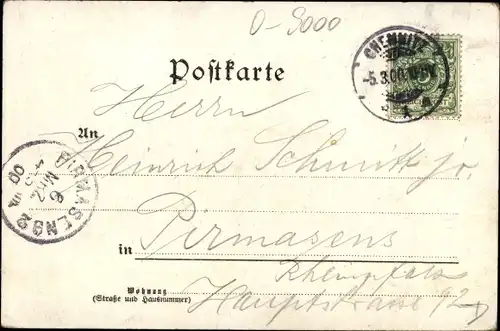 O-9000
Postkarte
CHEMNITZ
-5.3.00.
Herrn
An Heinrich Schmitt jo.
PIRMASENS 2
6 MRZ
00
in Pirmasens
Rheinpfalz
Wohnung
(Straße und Hausnummer)
Hauptstrasse 92